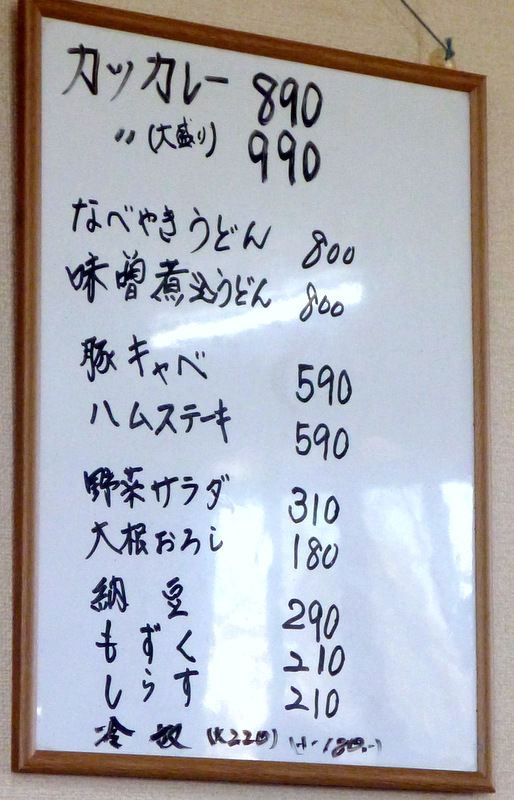 カツカレー 890
〃(大盛り) 990
なべやきうどん 800
味噌煮込うどん 800
豚キャベ 590
ハムステーキ 590
野菜サラダ 310
大根おろし 180
納豆 290
もずく 210
しらす 210
冷奴